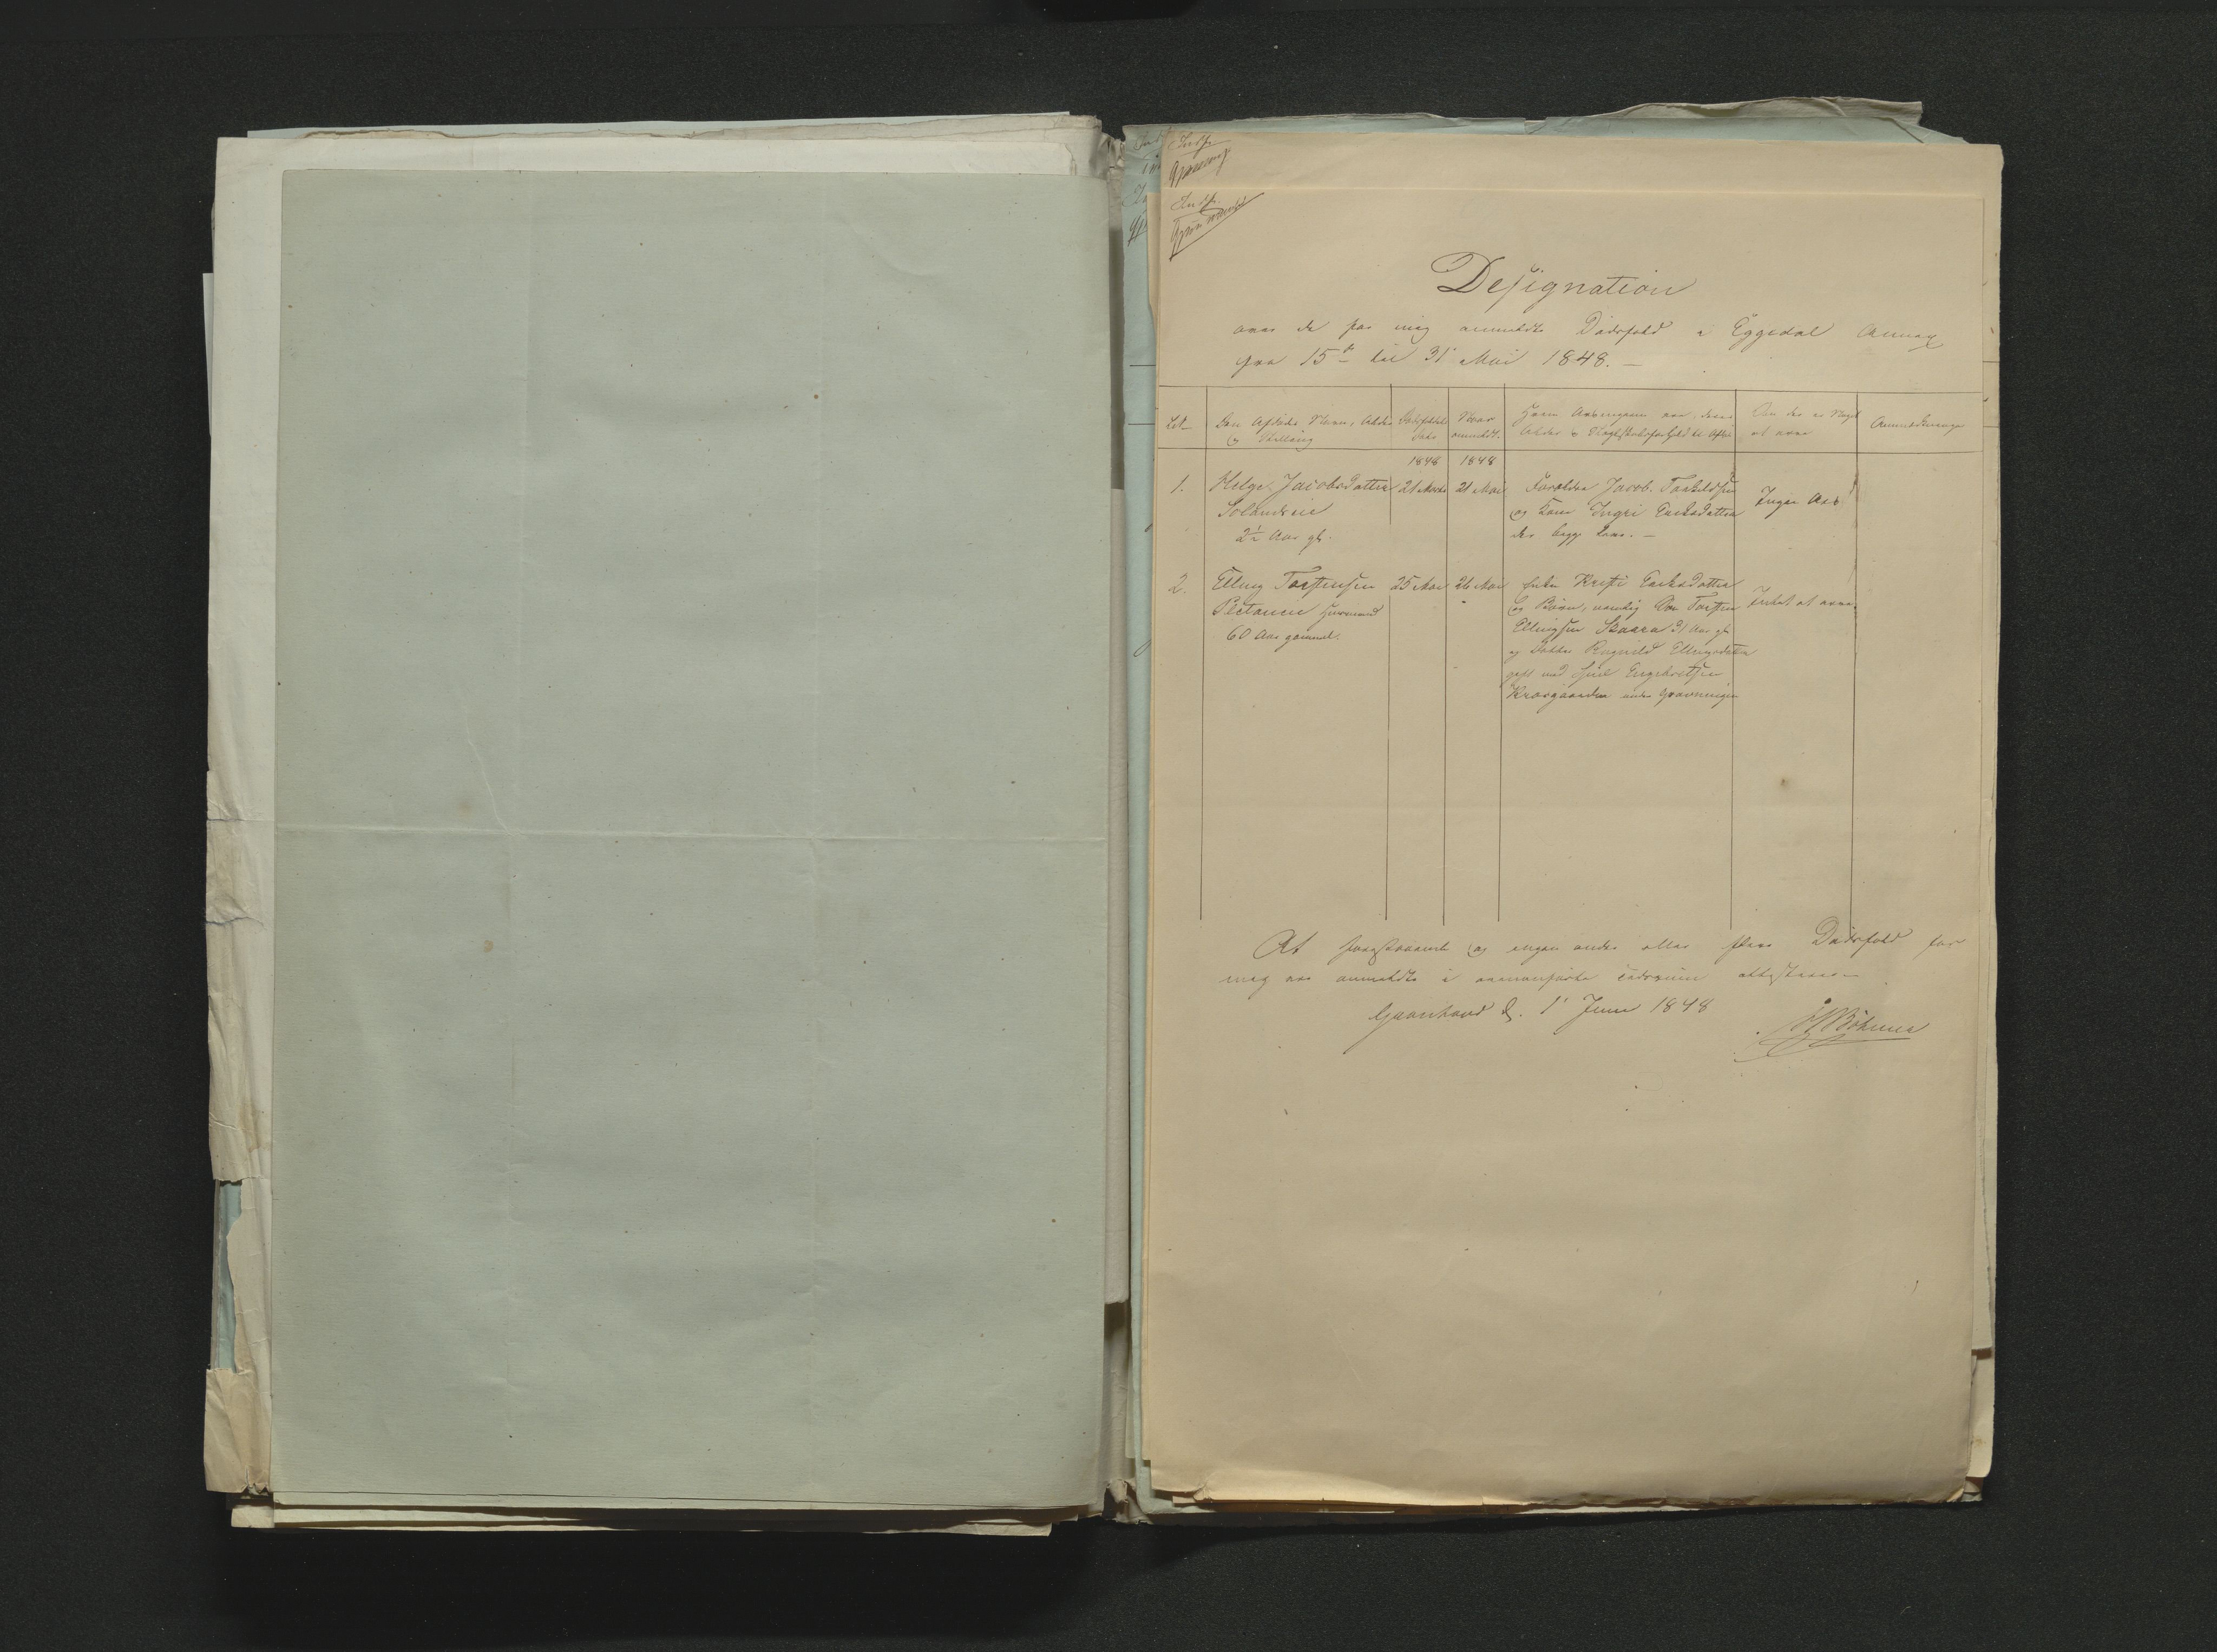 Designation
over de for mig anmeldte Dødsfald i Eggedal Annex
fra 15de til 31 Mai 1848. —
Lit Den Afdødes Navn, Alder Dødsfaldets Naar Hvem Arvingerne ere, deres Om der er Noget Anmærkninger
og Stilling Dato anmeldt. Alder og Slægtskabsforhold til Afdøde at arve
1848 1848
1. Helge Jacobsdatter 21 Marts 21 Mai Forældre Jacob Torkildsen Ingen Arv
Solandseie og Kone Ingri Eriksdatter
2½ Aar gl. der begge leve. —
2. Elling Torstensen 25 Mai 26 Mai Enke Kristi Eriksdatter Enket at arve
Huusmand og Børn, nemlig Torsten
60 Aar gammel. Ellingsen Skaara 31 Aar gl.
og Datter Ragnild Ellingsdatter
gift med Engebretsen
under Grønningen
At foranstaaende og ingen andre eller flere Dødsfald for
mig ere anmeldte i ovenanførte Tidsrum attesteres
Gaarhoud d. 1 Juni 1848
Bøhmer